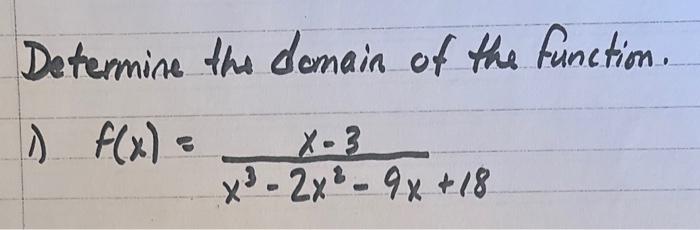 Determine the domain of the function.
1) f(x) = x - 3
x³ - 2x² - 9x + 18